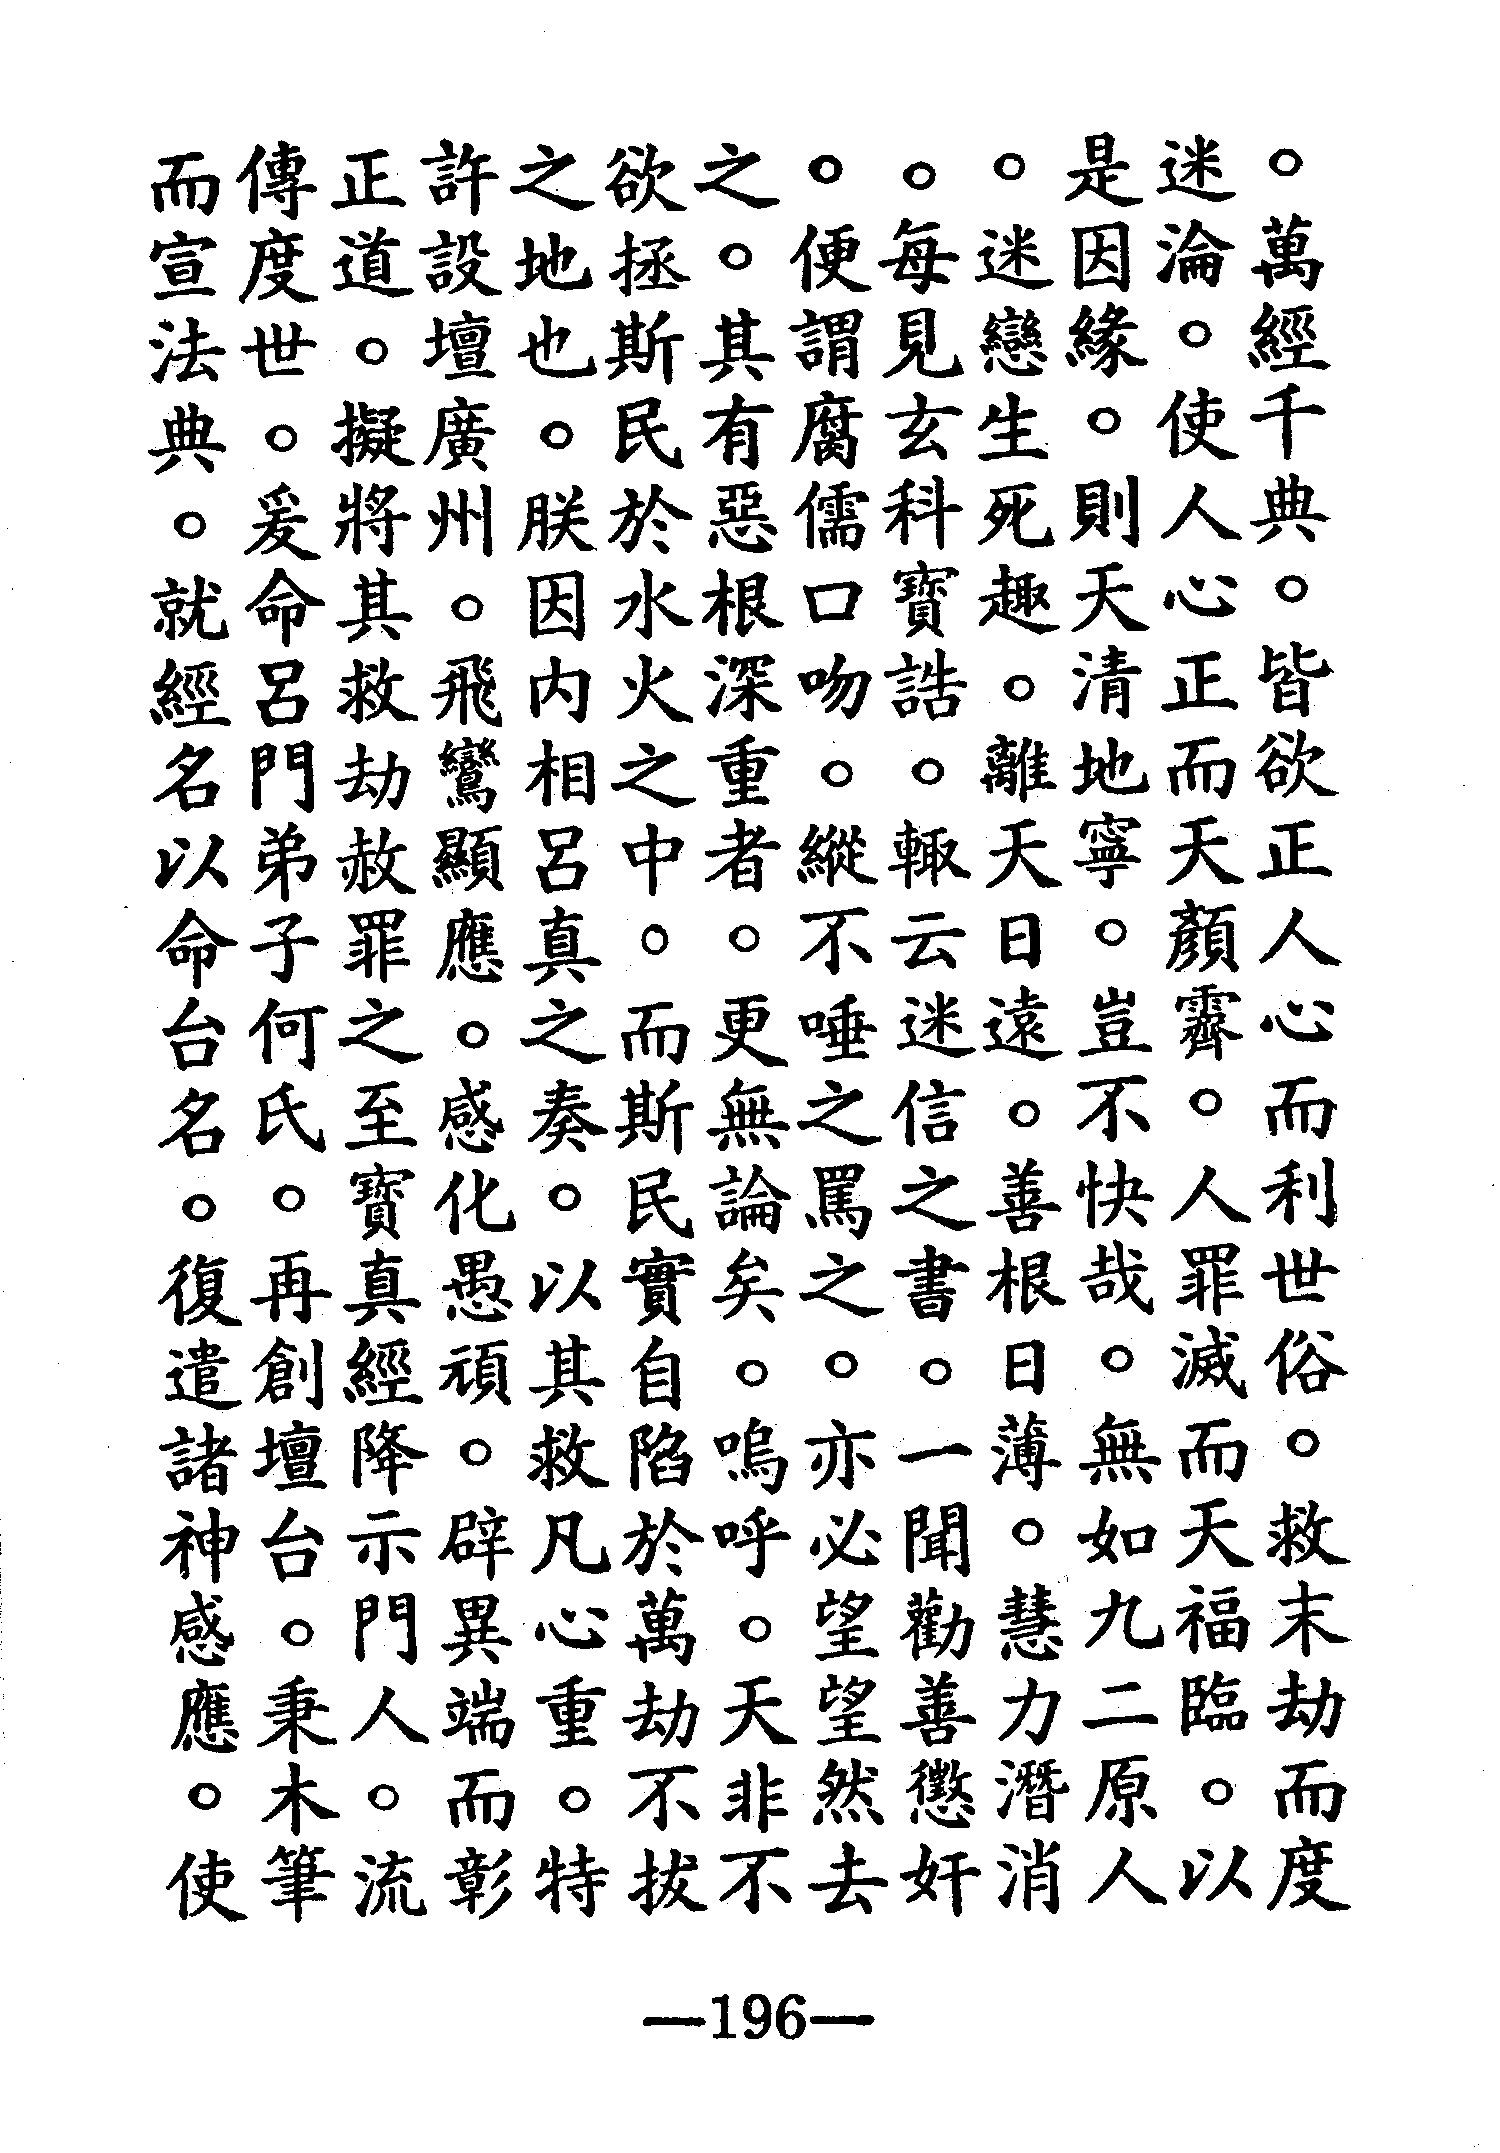 。萬經千典。皆欲正人心而利世俗。救末劫而度
迷淪。使人心正而天顏霽。人罪滅而天福臨。以
是因緣。則天清地寧。豈不快哉。無如九二原人
。迷戀生死趣。離天日遠。善根日薄。慧力潛消
。每見玄科寶誥。輙云迷信之書。一聞勸善懲奸
。便謂腐儒口吻。縱不唾之罵之。亦必望望然去
之。其有惡根深重者。更無論矣。嗚呼。天非不
欲拯斯民於水火之中。而斯民實自陷於萬劫不拔
之地也。朕因内相呂真之奏。以其救凡心重。特
許設壇廣州。飛鸞顯應。感化愚頑。辟異端而彰
正道。擬將其救劫赦罪之至寶真經降示門人。流
傳度世。爰命呂門弟子何氏。再創壇台。秉木筆
而宣法典。就經名以命台名。復遣諸神感應。使
—196—